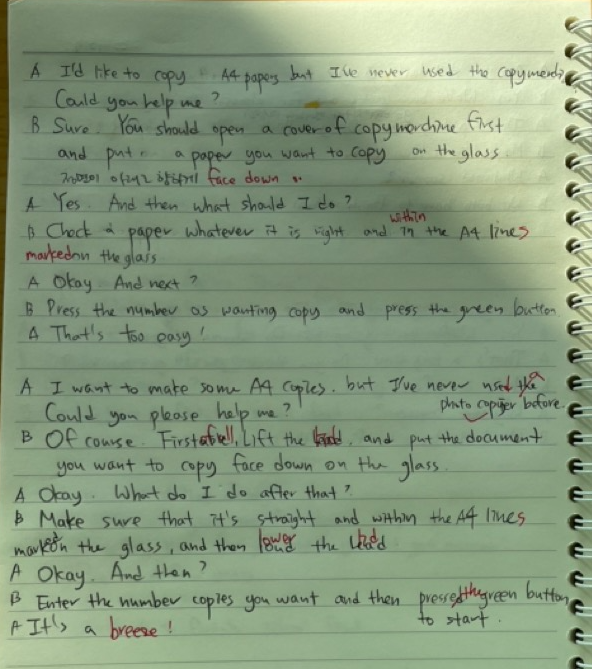 A I'd like to copy A4 papers but I've never used the copymerchine
Could you help me?
B Sure. You should open a cover of copymorchine first
and put a paper you want to copy on the glass.
정면이 아래로 향하게 face down
A Yes. And then what should I do?
B Check a paper whatever it is right and in within the A4 lines
marked on the glass
A Okay And next?
B Press the number as wanting copy and press the green button
A That's too easy!
A I want to make some A4 copies. but I've never used the a
photo copier before.
Could you please help me?
B Of course. First of all, Lift the lid, and put the document
you want to copy face down on the glass.
A Okay. What do I do after that?
B Make sure that it's straight and within the A4 lines
marked on the glass, and then lower the lid
A Okay. And then?
B Enter the number copies you want and then press the green button
to start.
A It's a breeze!